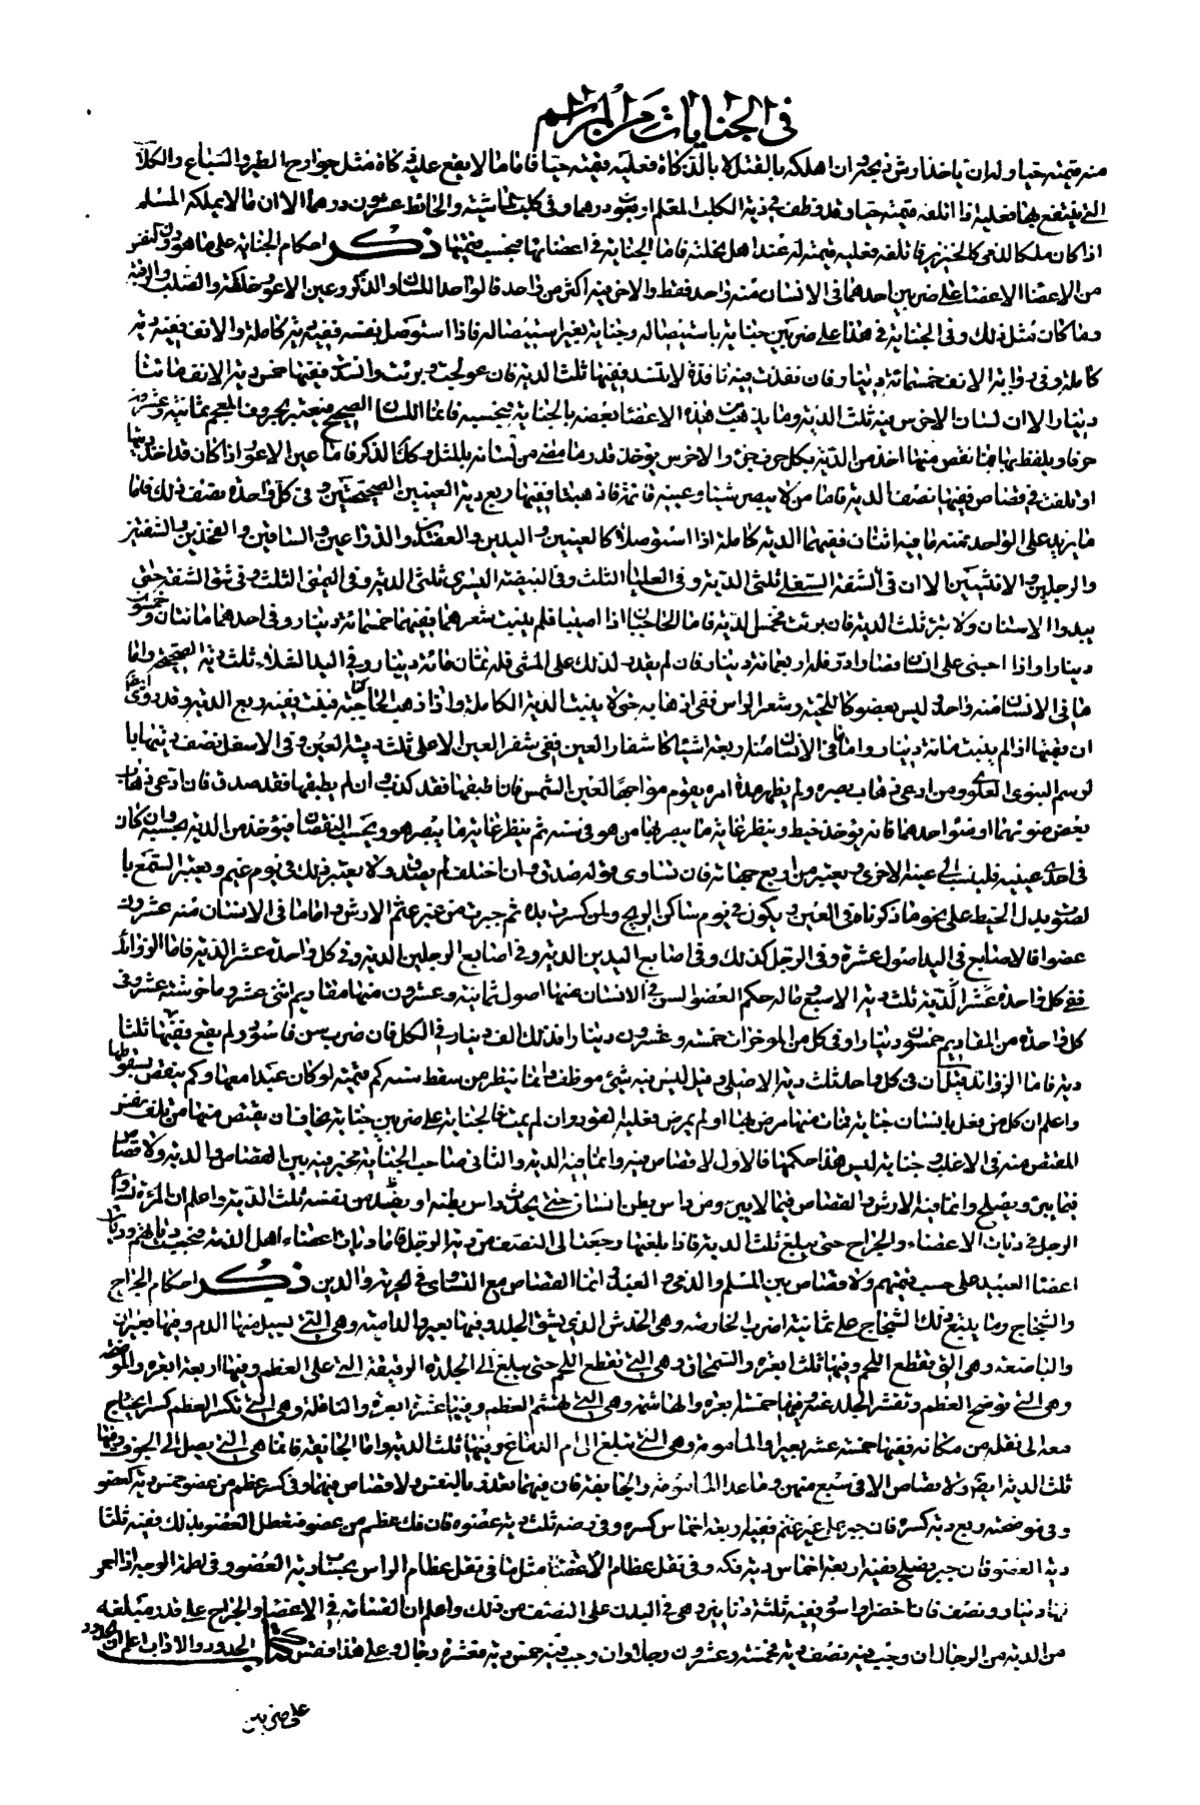 في الجنايات من المراسم
منه قيمته حيا وله ان ياخذ ارش ذبحه وان اهلكه بالقتل لا بالذكاة فعليه قيمته حيا فاما ما لا يقع عليه ذكاة مثل جوارح الطير والسباع والكلاب
التي ينتفع بها فعليه اذا اتلفه قيمته حيا وقد وظف في دية الكلب المعلم اربعون درهما وفي كلب الماشية والحائط عشرون درهما الا ان ما لا يملكه المسلم
اذا كان ملكا للذمي كالخنزير فاتلفه فعليه قيمته له عند اهل نحلته فاما الجناية في اعضائها فبحسب قيمتها ذكر احكام الجناية على ما هو دون النفس
من الاعضاء الاعضاء على ضربين احدهما في الانسان منه واحد فقط والاخر فيه اكثر من واحد فالواحد اللسان والذكر وعين الاعور خلقة والصلب والرقبة
وما كان مثل ذلك وفي الجناية في هذا على ضربين جناية باستيصاله وجناية بغير استيصاله فاذا استوصل نفسه ففيه دية كاملة والانف فيه دية
كاملة وفي روثة الانف خمسمائة دينار فان نفذت فيه نافذة لا تنسد ففيها ثلث الدية فان عولجت وبرئت وانسدت ففيها خمس دية الانف مائتا
دينار الا ان لسان الاخرس فيه ثلث الدية وما يذهب من هذه الاعضاء بعضه بالجناية فبحسبه فاما اللسان الصحيح فيعتبر بحروف المعجم ثمانية وعشرون
حرفا ويلفظ بها فما نقص منها اخذ من الدية بكل حرف جزء والاخرس يؤخذ قدر ما مضى من لسانه بالمثل وكذا الذكر فاما عين الاعور اذا كان قد اخذ ديتها
او تلفت في قصاص ففيها نصف الدية فاما من لا يبصر شيئا وعينه قائمة فاذهبها ففيها ربع دية العينين الصحيحتين وفي كل واحدة نصف ذلك فاما
ما يزيد على الواحد فمنه ما فيه اثنان ففيهما الدية كاملة اذا استوصلا كالعينين واليدين والعضدين والذراعين والساقين والفخذين والشفتين
والرجلين والانثيين الا ان في الشفة السفلى ثلثي الدية وفي العليا الثلث وفي البيضة اليسرى ثلثي الدية وفي اليمنى الثلث وفي شق الشفة حتى
يبدوا الاسنان ولا يبرء ثلث الدية فان برئت فخمس الدية فاما الحاجبان اذا اصيبا فلم ينبت شعرهما ففيهما خمسمائة دينار وفي احدهما مائتان وخمسون
دينارا واذا جني على انسان فصار ادر فله اربعمائة دينار فان لم يقدر لذلك على المشي فله ثمان مائة دينار وفي اليد الشلاء ثلث دية الصحيحة واما
ما في الانسان منه واحد وليس بعضو كاللحية وشعر الراس ففي اذهابه حتى لا ينبت الدية الكاملة واذا ذهب الحاجبه فنبت ففيه ربع الدية وقد روى ايضا
ان فيهما اذا لم ينبت مائة دينار واما ما في الانسان منه اربعة اشياء كاشفار العين ففي شفر العين الاعلى ثلث دية العين وفي الاسفل نصف ديتها بهذا
الرسم النبوي العلوي ومن ادعى ذهاب بصره ولم يظهر صدق امره يقوم مواجها لعين الشمس فان اطبقهما فقد كذب وان لم يطبقهما فقد صدق فان ادعى ذهاب
بعض ضوئهما او ضوء احدهما فانه يؤخذ خيط وينظر غاية ما يبصر بها من هو في سنه ثم ينظر غاية ما يبصر هو ويحسب النقصان فيؤخذ من الدية بحسبه وان كان
في احدى عينيه قيست الى عينه الاخرى ويعتبر من اربع جهاته فان تساوى قوله صدق وان اختلف لم يصدق ولا يعتبر ذلك في يوم غيم ويعتبر السمع با
لصوت بدل الخيط على نحو ما ذكرناه في العين ويكون في يوم ساكن الريح ولمن كسرت يده ثم جبرت من غير عثم الارش واما ما في الانسان منه عشرون
عضوا فالاصابع في اليد اصول عشرة وفي الرجل كذلك وفي اصابع اليدين الدية وفي اصابع الرجلين الدية وفي كل واحدة عشر الدية فاما الزوائد
ففي كل واحدة عشر الدية ثلث دية الاصبع فاما حكم العضو السن في الانسان منها اصول ثمانية وعشرون منها مقاديم اثنى عشر ومآخر ستة عشر وفي
كل واحدة من المقاديم خمسون دينارا وفي كل من المؤخرات خمسة وعشرون دينارا فذلك الف دينار في الكل فان ضرب سن فاسود ولم يقع ففيها ثلثا
دية فاما الزوائد فقيل ان في كل واحد ثلث دية الاصلي وقيل ليس فيه شيء موظف وانما ينظر من سقط سنه كم قيمته لو كان عبدا معها وكم ينقص بسقوطها
واعلم ان كل من فعل بانسان جناية فمات منها مرض بها او لم يمرض فعليه القود وان لم يمت فالجناية على ضربين جناية يخاف ان يقتص منها من تلف نفس
المقتص منه في الاغلب وجناية ليس هذا حكمها فالاول لا قصاص فيه وانما فيه الدية والثاني صاحب الجناية مخير فيه بين القصاص والدية ولا قصاص
فيما يبرئ ويصلح وانما فيه الارش والقصاص فيما لا يبرئ ومن داس بطن انسان حتى يحدث داس بطنه او يفتدى نفسه بثلث الدية واعلم ان المرأة تساوي
الرجل في ديات الاعضاء والجراح حتى يبلغ ثلث الدية فاذا بلغتها رجعت الى النصف من دية الرجل فاما ديات اعضاء اهل الذمة فبحسب دياتهم وديات
اعضاء العبيد على حسب قيمتهم ولا قصاص بين المسلم والذمي والعبد انما القصاص مع التساوي في الحرية والدين ذكر احكام الجراح
والشجاج وما يتبع ذلك الشجاج على ثمانية اضرب الخارصة وهي الخدش الذي يشق الجلد وفيها بعير والدامية وهي التي يسيل منها الدم وفيها بعيران
والباضعة وهي التي تقطع اللحم وفيها ثلث ابعرة والسمحاق وهي التي تقطع اللحم حتى يبلغ الى الجلدة الرقيقة التي على العظم وفيها اربعة ابعرة والموضحة
وهي التي توضح العظم وتقشر الجلد عنه وفيها خمسة ابعرة والهاشمة وهي التي تهشم العظم وفيها عشرة ابعرة والناقلة وهي التي تكسر العظم كسرا يحتاج
معه الى نقله من مكانه ففيها خمسة عشر بعيرا والمأمومة وهي التي تبلغ الى ام الدماغ وفيها ثلث الدية واما الجائفة فانما هي التي يصل الى الجوف وفيها
ثلث الدية ايضا ولا قصاص الا في سبع منهن وما عدا المأمومة والجائفة فان فيهما تغرر بالنفس ولا قصاص فيهما وفي كسر عظم من عضو خمس دية العضو
وفي موضحته ربع دية كسره فان جبر على غير عثم ففيه اربعة اخماس كسره وفي رضه ثلث دية عضوه فان فك عظم من عضو فتعطل العضو بذلك ففيه ثلثا
دية العضو فان جبر وصلح ففيه اربعة اخماس دية فكه وفي نقل عظام الاعضاء مثل ما في نقل عظام الراس بحساب دية العضو وفي لطمة الوجه اذا احمر
نهاد دينار ونصف فان اخضر او اسود ففيه ثلثة دنانير وهي في البدن على النصف من ذلك واعلم ان القسامة في الاعضاء والجراح على قدر مبلغه
من الدية من الرجال ان وجب فيه نصف دية فخمسة وعشرون رجلا وان وجب فيه خمس دية فعشرة رجال وعلى هذا فقس كتاب الحدود والاداب اعلم ان الحدود